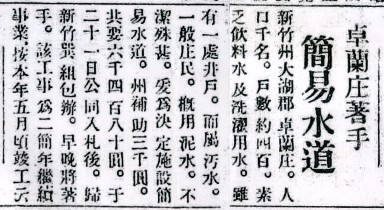 卓蘭庄著手
簡易水道
新竹州大湖郡卓蘭庄。人
口千名。戶數約四百。素
乏飲料水及洗濯用水。雖
有一處井戶。而屬污水。
一般庄民。概用泥水。不
潔殊甚。爰為決定施設簡
易水道。州補助三千圓。
共要六千四百八十圓。于
二十一日公同入札後。歸
新竹巽組包辦。早晚將著
手。該工事為二箇年繼續
事業按本年五月頃竣工云